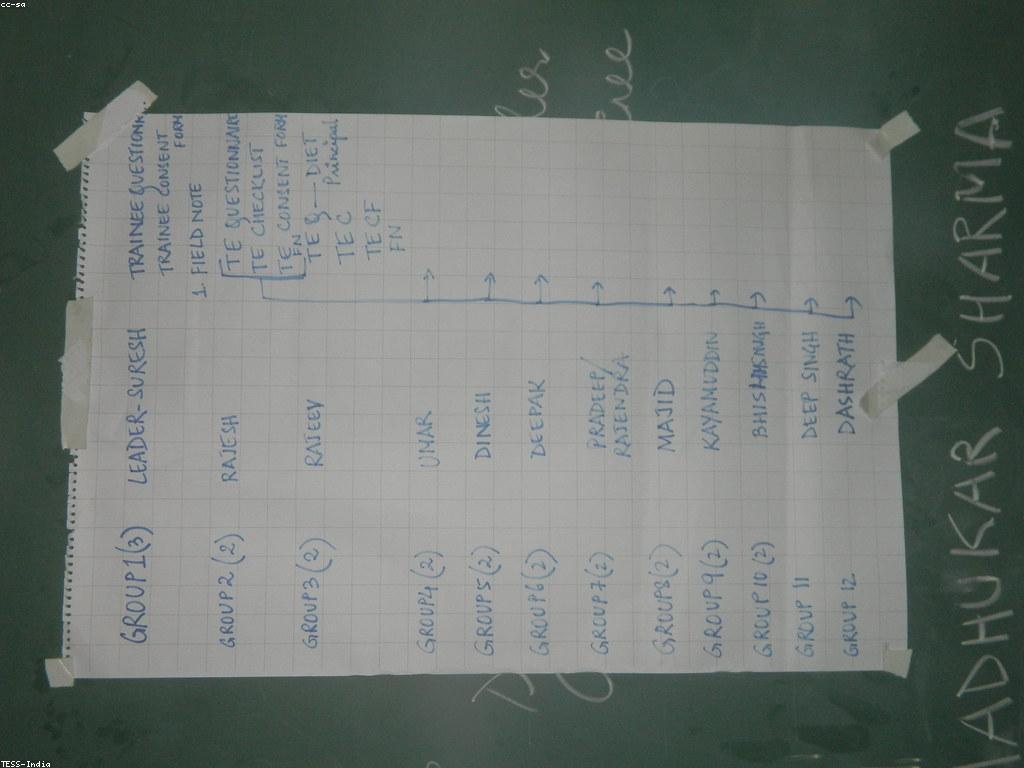 cc-sa
GROUP 1 (3) LEADER-SURESH TRAINEE QUESTIONN...
TRAINEE CONSENT
FORM
1. FIELD NOTE
GROUP 2 (2) RAJESH TE QUESTIONNAIRE
TE CHECKLIST
TE CONSENT FORM
FN
GROUP 3 (2) RAJEEV TE Q DIET
Principal
TE C
TE CF
FN
GROUP 4 (2) UMAR
GROUP 5 (2) DINESH
GROUP 6 (2) DEEPAK
GROUP 7 (2) PRADEEP/
RAJENDRA
GROUP 8 (2) MAJID
GROUP 9 (2) KAYAMUDDIN
GROUP 10 (2)
GROUP 11 DEEP SINGH
GROUP 12 DASHRATH
ADHUKAR SHARMA
TESS-India